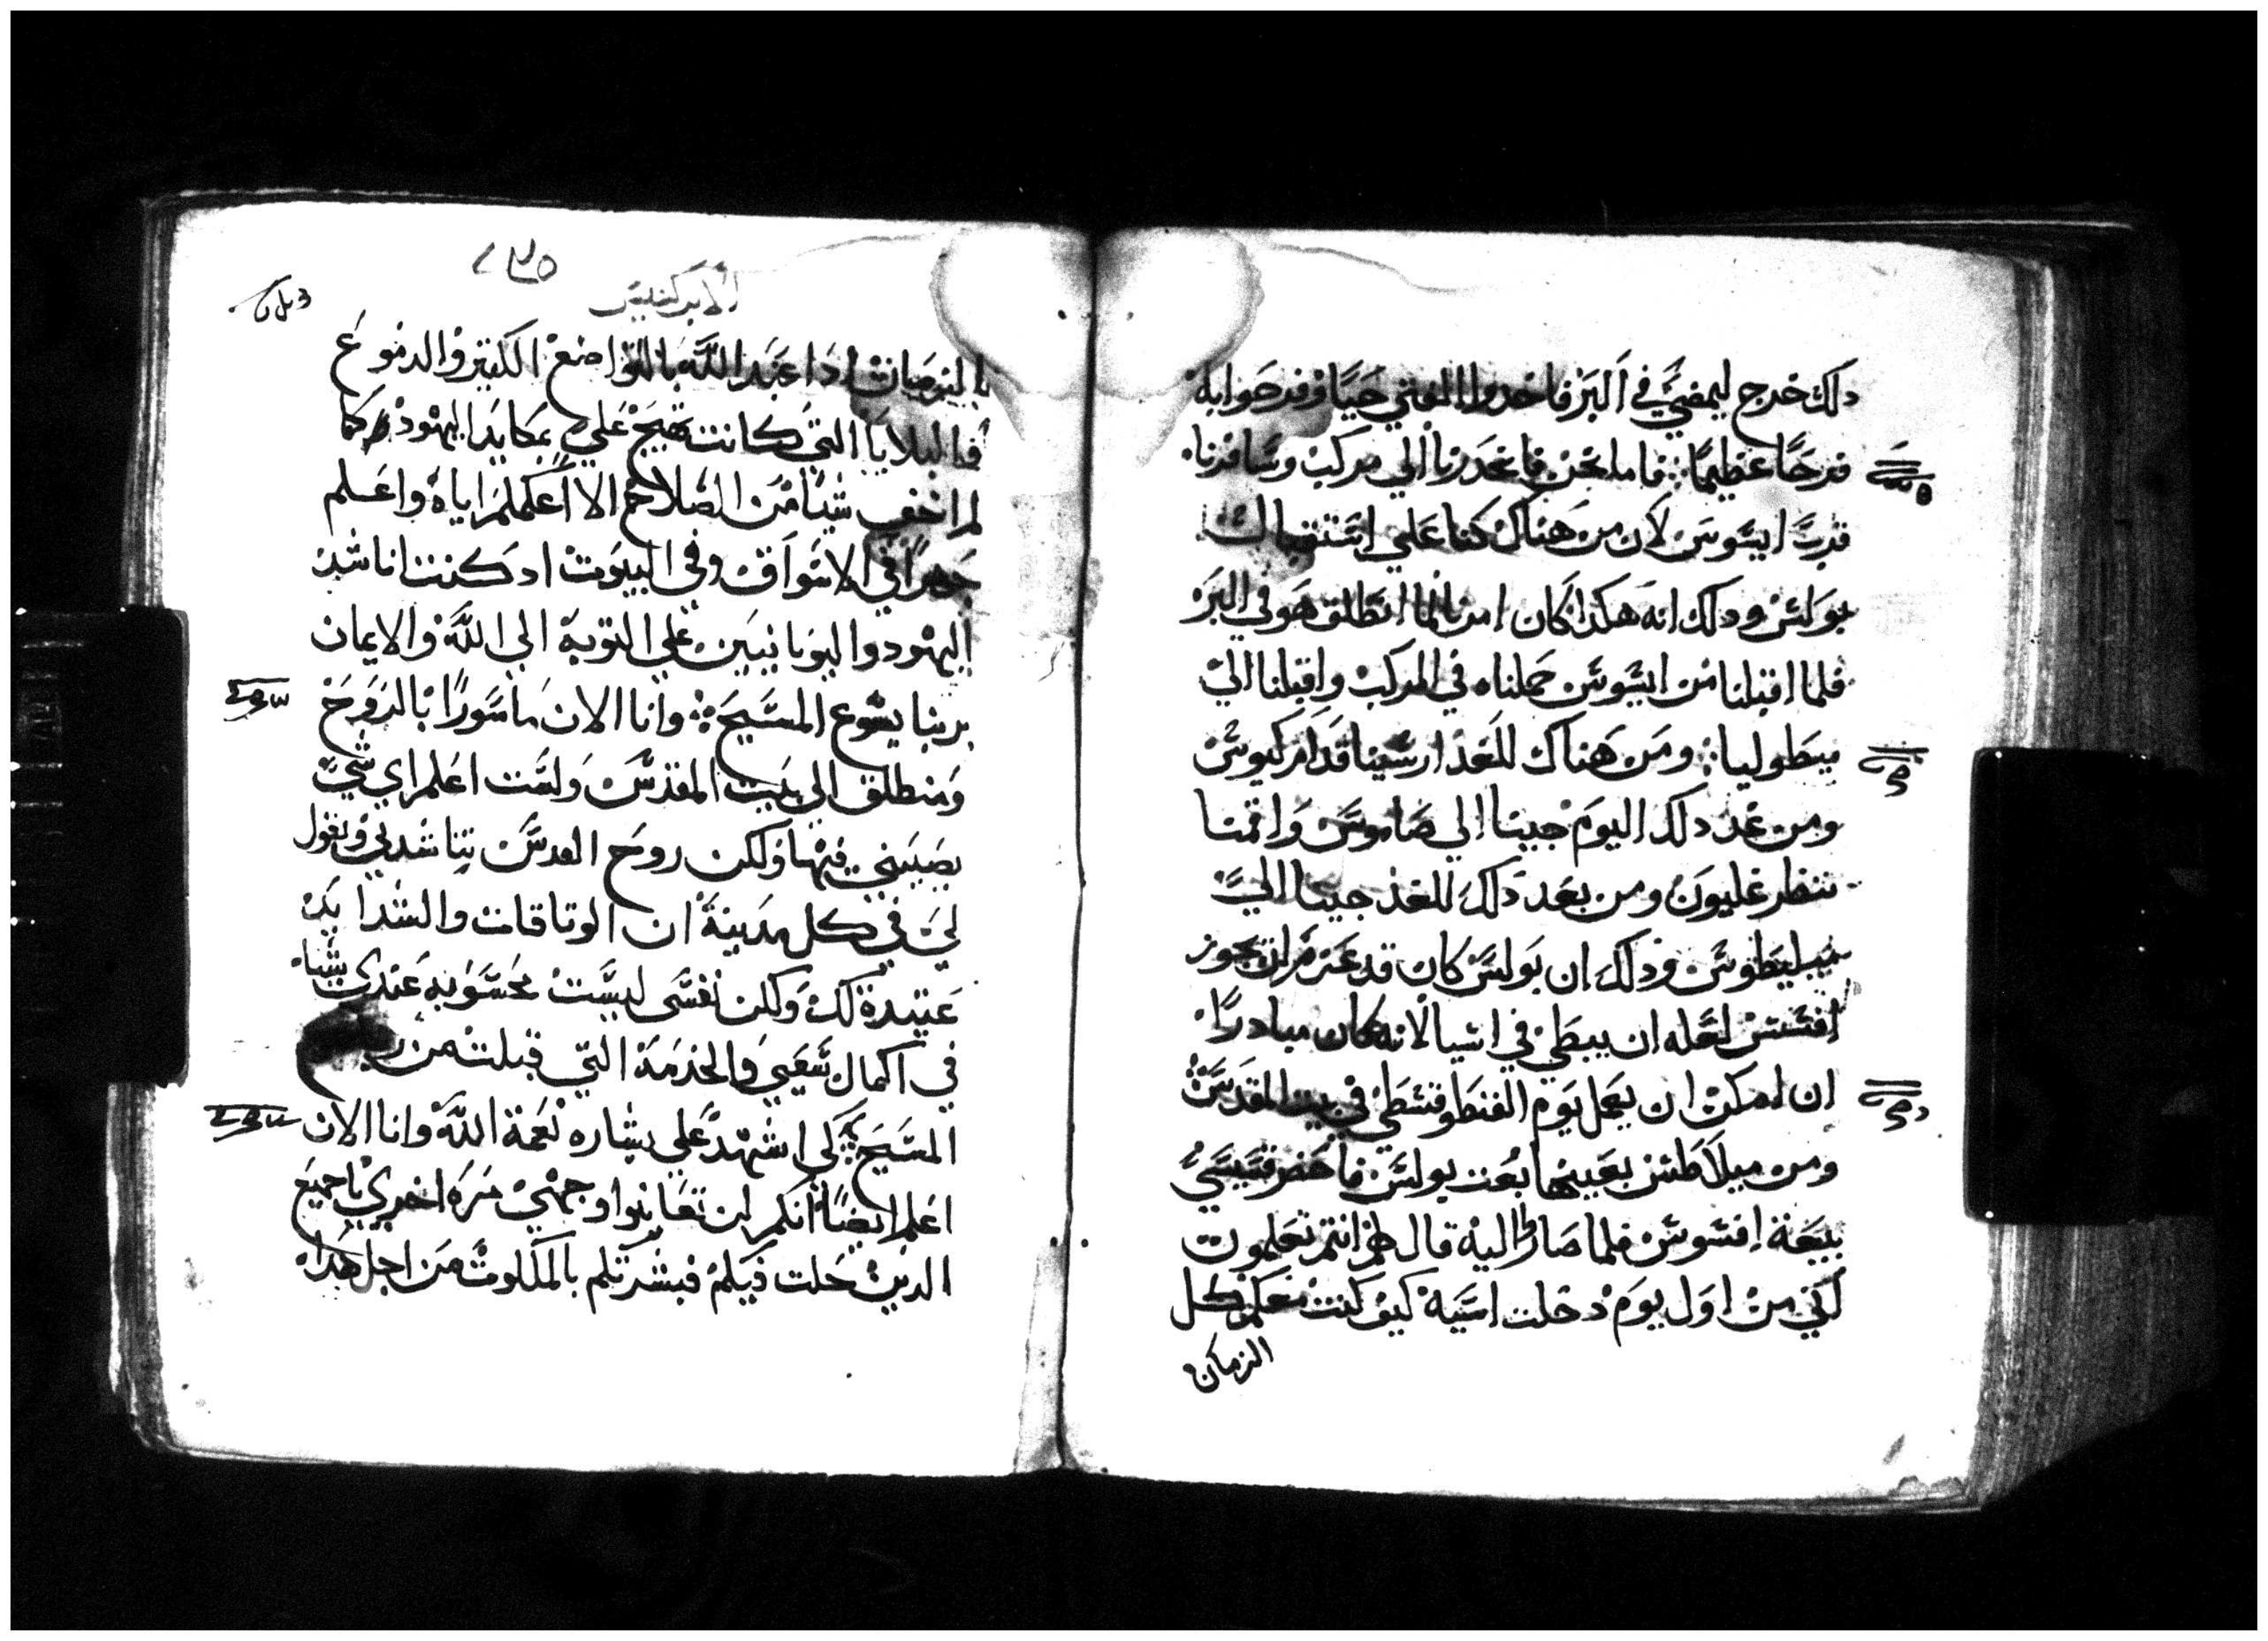 دلك خرج ليمضي في البر فاخدوا الفتي حيا وفرحوا به
فرحا عظيما فاما نحن فانحدرنا الي مركب وسافرنا
قرب ايسوس لان من هناك كنا علي استقبال
بولس ودلك انه هكدا كان امرنا لما انطلق هو في البر
فلما اقبلنا من ايسوس حملناه في المركب واقبلنا الي
ميطوليا ومن هناك للغد ارسينا قدام كيوس
ومن غد دلك اليوم جينا الي صاموس واقمنا
ننظر غليون ومن بعد دلك للغد جينا الي
ميليطوس ودلك ان بولس كان قد عزم ان يجوز
افسس لعله ان يبطي في اسيا لانه كان مبادرا
ان امكن ان يعمل يوم الفنطوقسطي في بيت المقدس
ومن ميلاطس بعينها بعث بولس فاحضر قسيسي
بيعة افسوس فلما صاروا اليه قال لهم انتم تعلمون
اني من اول يوم دخلت اسيه كيف كنت معكم كل
الزمان
الابركسيس
اد اعبد الله بالتواضع الكثير والدموع
والبلايا التي كانت تهيج علي بمكايد اليهود كما
لم اخف شيا من الصلاح الا اعلمكم اياه واعلم
جهرا في الاسواق وفي البيوت اد كنت اناشد
اليهود واليونانيين علي التوبة الي الله والايمان
بربنا يسوع المسيح وانا الان ماسورا بالروح
ومنطلق الي بيت المقدس ولست اعلم اي شي
يصيبني فيها ولكن روح القدس يناشدني ويقول
لي في كل مدينة ان الوتاقات والشدايد
عتيدة لك ولكن نفسي ليست محسوبه عندي شيا
في اكمال سعيي والخدمة التي قبلت من
المسيح لكي اشهد علي بشاره نعمة الله وانا الان
اعلم ايضا انكم لن تعاينوا وجهي مره اخري يا جميع
الدين حلت فيكم فبشرتكم بالملكوت من اجل هدا